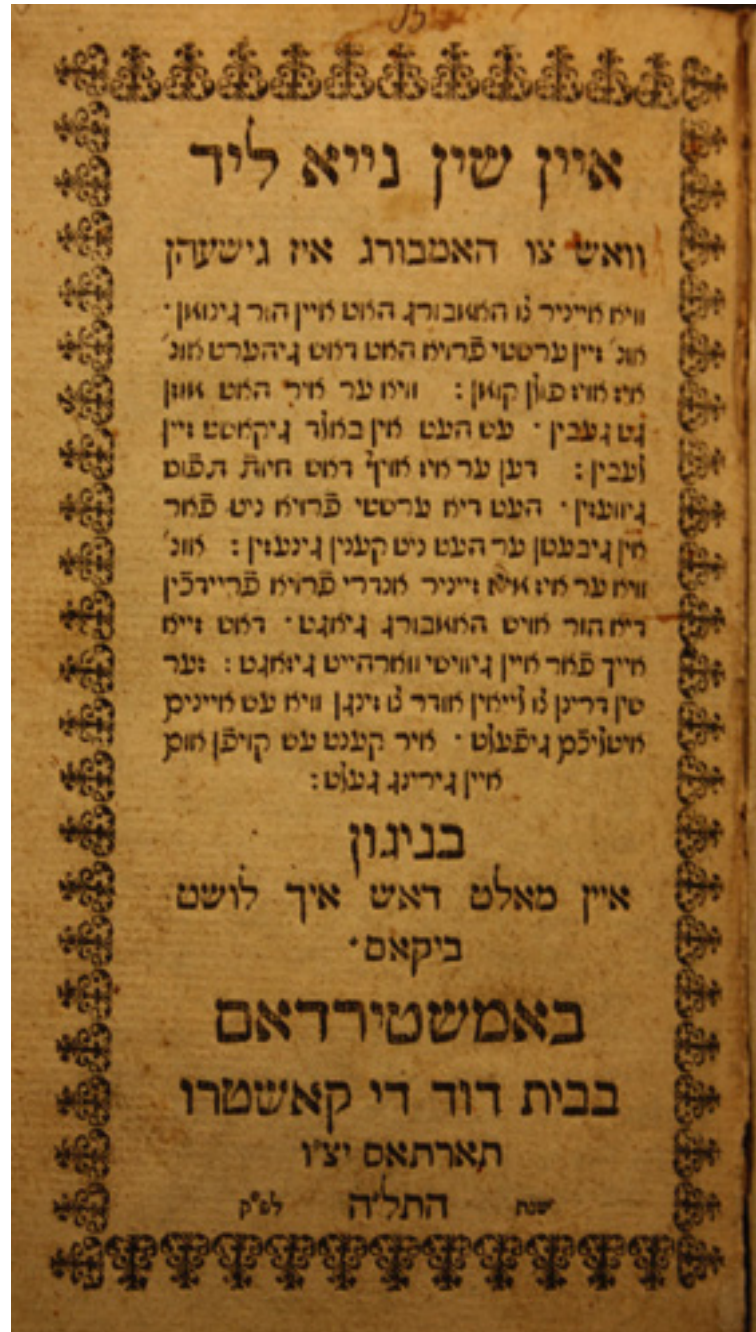 איין שין נייא ליד
וואש צו האמבורג איז גישעהן
וויא איינר צו האמבורג האט איין הור גינומן·
אונ׳ זיין ערשטי פֿרויא האט דאט גיהערט אונ׳
איז אויז פולן קומן : וויא ער איר האט מוזן
גט געבין · עט העט אין באלד גיקאסט זיין
לעבין : דען ער איז אויף דאט חיות תפוס
גיוועזין · העט דיא ערשטי פֿרויא ניט פֿאר
אין גיבעטן ער העט ניט קענין גינעזין : אונ׳
וויא ער איז מיט זיינר אנדרי פֿרויא פֿריידכֿין
דיא הור אויש האמבורג גיאגט · דאט זייא
אייך פֿאר איין גיוויסי ווארהייט גיזאגט : זער
שין דרינן צו לייאין אודר צו זינגן וויא עט איינים
איטליכֿם גיפֿעלט · איר קענט עט קויפֿן אום
איין גירינג געלט :
בניגון
איין מאלט דאש איך לושט
ביקאם·
באמשטירדאם
בבית דוד די קאשטרו
תארתאס יצ״ו
שנת התל״ה לפ״ק